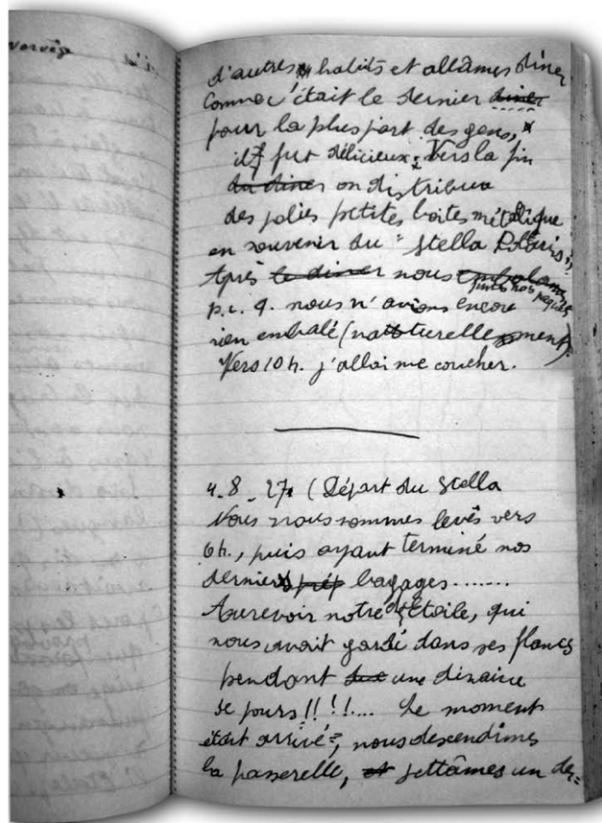 d'autres habits et allâmes diner
Comme c'était le dernier diner
pour la plus part des gens,
il fut délicieux. Vers la fin
du diner on distribua
des jolies petites boites métalique
en souvenir du "Stella Polaris"
Après le diner nous
fimes nos
p.c.q. nous n'avions encore
rien embalé (naturellement).
Vers 10 h. j'allai me coucher.
4.8_27. (Départ du Stella
Nous nous sommes levés vers
6h., puis ayant terminé nos
derniers prép bagages........
Aurevoir notre Etoile, qui
nous avait gardé dans ses flancs
pendant une dizaine
de jours!!!!.... Le moment
était arrivé, nous descendîmes
la passerelle, et jettâmes un der=